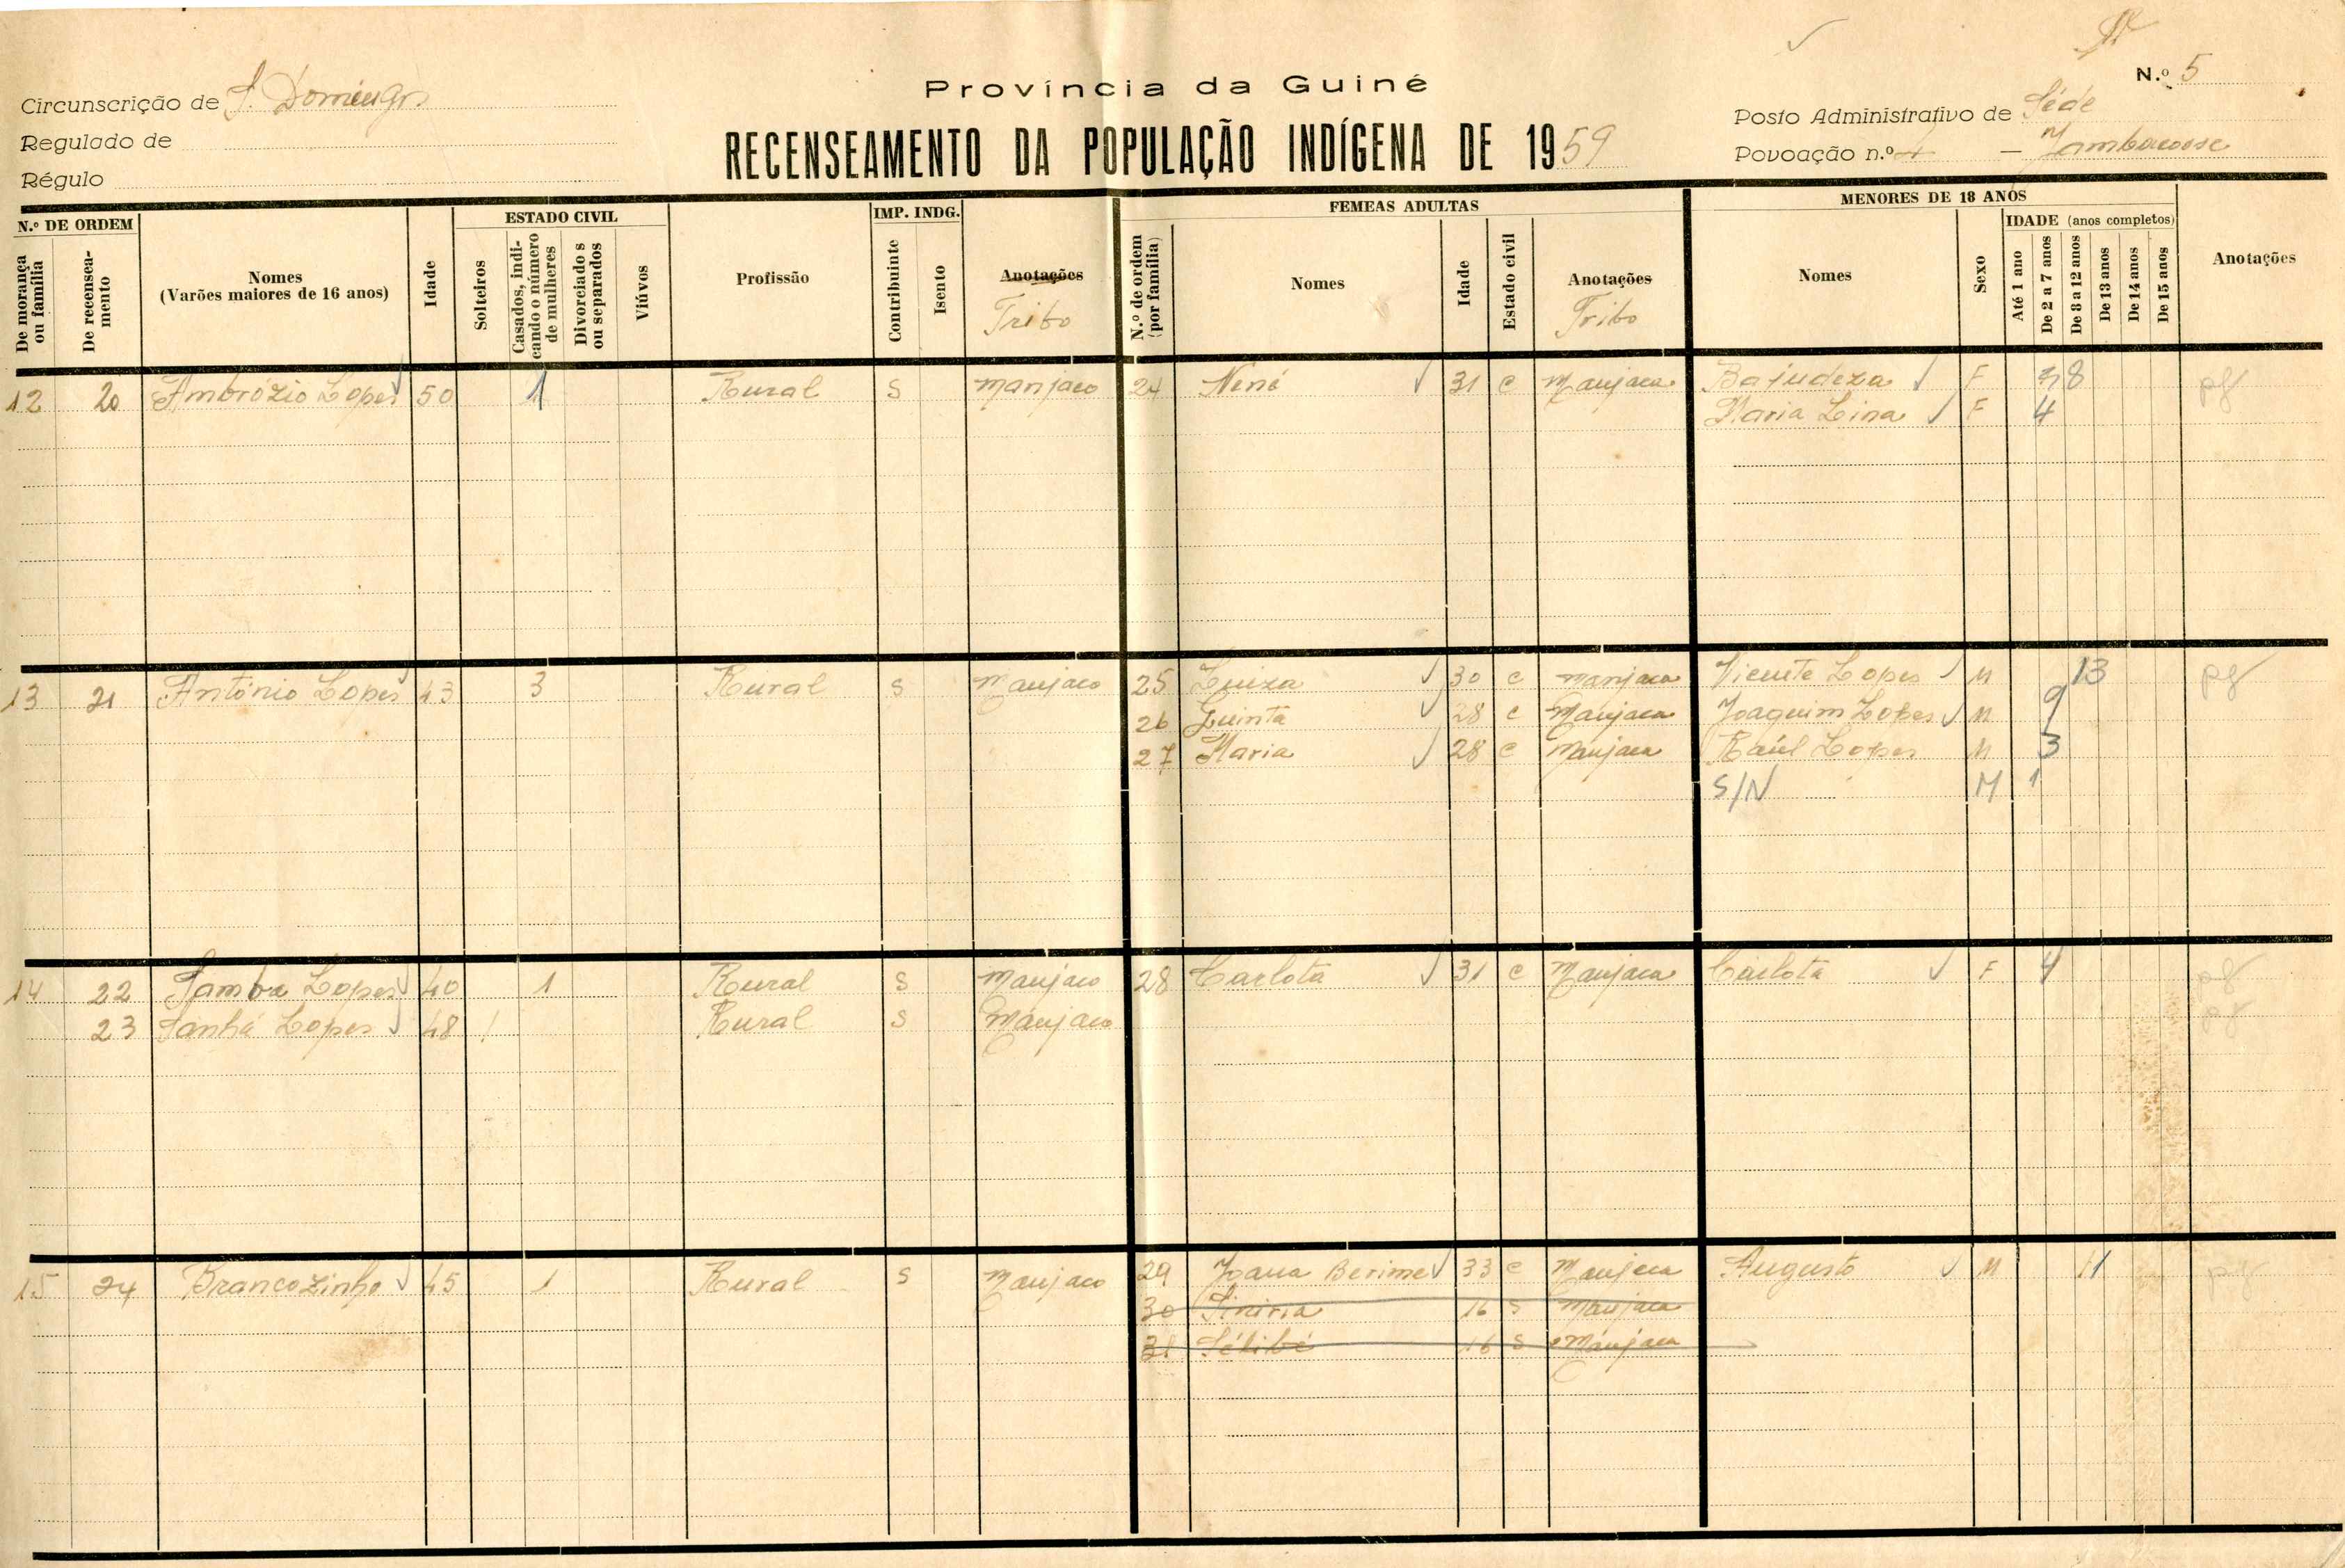 N.º 5
Província da Guiné
Circunscrição de S. Domingos
Posto Administrativo de Séde
Regulado de
RECENSEAMENTO DA POPULAÇÃO INDÍGENA DE 1959
Povoação n.º 4 –
Régulo
N.º DE ORDEM
De morança ou família
De recenseamento
Nomes
(Varões maiores de 16 anos)
Idade
ESTADO CIVIL
Solteiros
Casados, indicando o número de mulheres
Divorciados ou separados
Viúvos
Profissão
IMP. INDG.
Contribuinte
Isento
Anotações
Tribo
FEMEAS ADULTAS
N.º de ordem (por família)
Nomes
Idade
Estado civil
Anotações
Tribo
MENORES DE 18 ANOS
Nomes
Sexo
IDADE (anos completos)
Até 1 ano
De 2 a 7 anos
De 8 a 12 anos
De 13 anos
De 14 anos
De 15 anos
Anotações
12 20 Ambrózio Lopes 50 1 Rural S Manjaco 24 Nené 31 C Manjaca Bajudeza F 8 pg
Maria Lina F 4
13 21 António Lopes 43 3 Rural S Manjaco 25 Luiza 30 C Manjaca Vicente Lopes M 13 pg
26 Quinta 28 C Manjaca Joaquim Lopes M 9
27 Maria 28 C Manjaca Raúl Lopes M 3
S/N M 1
14 22 Samba Lopes 40 1 Rural S Manjaco 28 Carlota 31 C Manjaca Carlota F 4 pg
23 Sanhá Lopes 48 1 Rural S Manjaco pg
15 24 Brancozinho 45 1 Rural S Manjaco 29 Joana Berime 33 C Manjaca Augusto M 11 pg
30 Siniria 16 S Manjaca
31 Sélibé 16 S Manjaca